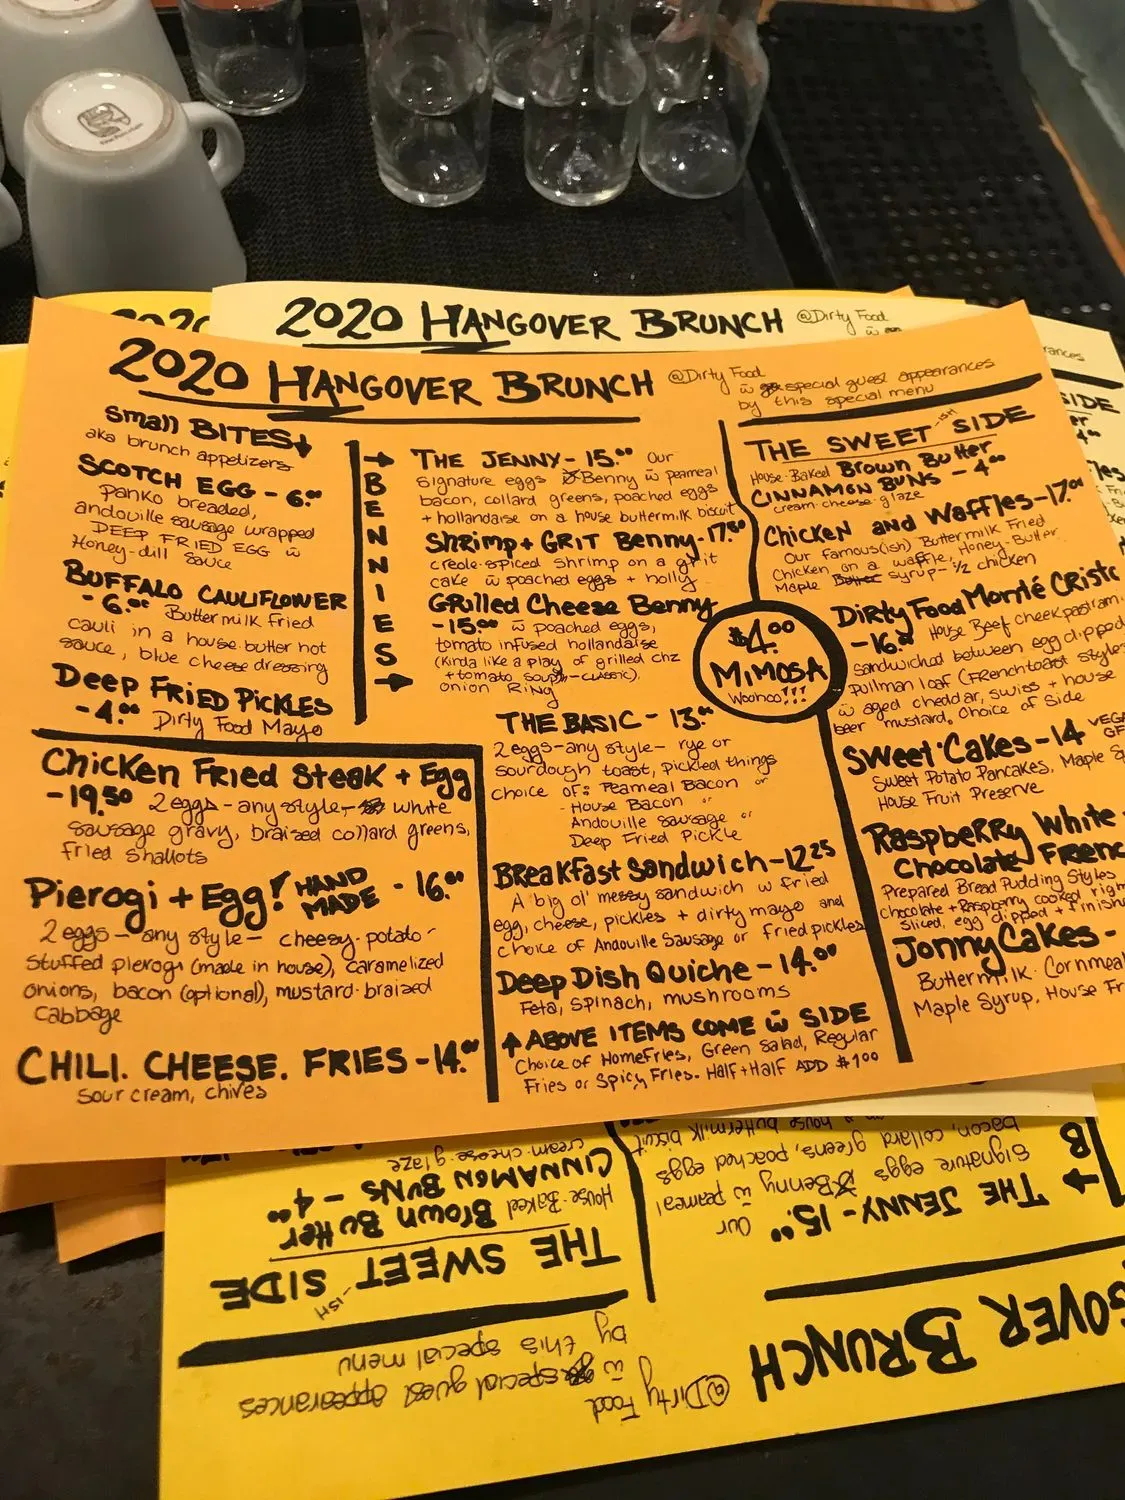 2020 HANGOVER BRUNCH @Dirty Food
w̄
2020
2020 HANGOVER BRUNCH @Dirty Food
w̄ special guest appearances
by this special menu
Small BITES↓
aka brunch appetizers
SCOTCH EGG - 6.00
panko breaded,
andouille sausage wrapped
DEEP FRIED EGG w̄
Honey-dill sauce
BUFFALO CAULIFLOWER
- 6.00 Buttermilk fried
cauli in a house butter hot
sauce, blue cheese dressing
Deep FRIED PICKLES
- 4.00 Dirty Food Mayo
Chicken Fried Steak + Egg
- 19.50 2 eggs - any style - white
sausage gravy, braised collard greens,
fried shallots
Pierogi + Egg! HAND MADE - 16.00
2 eggs - any style - cheesy-potato-
stuffed pierogi (made in house), caramelized
onions, bacon (optional), mustard-braised
cabbage
CHILI. CHEESE. FRIES - 14.00
sour cream, chives
→
B
E
N
N
I
E
S
→
THE JENNY - 15.00 Our
signature eggs Benny w̄ peameal
bacon, collard greens, poached eggs
+ hollandaise on a house buttermilk biscuit
Shrimp + GRIT Benny - 17.50
creole-spiced shrimp on a grit
cake w̄ poached eggs + holly
GRilled Cheese Benny
- 15.00 w̄ poached eggs,
tomato infused hollandaise
(Kinda like a play of grilled chz
+ tomato soup - CLASSIC).
onion RING
THE BASIC - 13.00
2 eggs - any style - rye or
sourdough toast, pickled things
choice of: Peameal Bacon or
- House Bacon or
Andouille sausage or
Deep Fried Pickle
BReakfast Sandwich - 12.25
A big ol' messy sandwich w fried
egg, cheese, pickles + dirty mayo and
choice of Andouille Sausage or fried pickles
Deep Dish Quiche - 14.00
Feta, spinach, mushrooms
↑ ABOVE ITEMS COME w̄ SIDE
Choice of HomeFries, Green Salad, Regular
Fries or Spicy Fries. Half + Half ADD $1.00
$4.00
MIMOSA
Woohoo!!!
THE SWEET-ISH SIDE
House-Baked BROWN BUTTER
CINNAMON BUNS - 4.00
cream-cheese-glaze
Chicken and Waffles - 17.00
Our famous(ish) Buttermilk Fried
Chicken on a waffle, Honey-Butter
Maple syrup - ½ chicken
DiRty Food Monté CRisto
- 16.00 House Beef cheek pastrami
sandwiched between egg dipped
Pullman loaf (French toast styles)
w̄ aged cheddar, swiss + house
beer mustard. Choice of Side
Sweet Cakes - 14 VEGAN
GF
Sweet Potato Pancakes, Maple
House Fruit Preserve
RaspbeRRy White
Chocolate FRENC
Prepared Bread Pudding Styles
chocolate + Raspberry cooked right
sliced, egg dipped + finish
JonnyCakes -
Buttermilk-Cornmeal
Maple Syrup, House Fr
rances
SIDE
OVER BRUNCH
@Dirty Food
w̄ special guest appearances
by this special menu
THE SWEET-ISH SIDE
House-Baked Brown Butter
CINNAMON BUNS - 4.00
cream-cheese-glaze
→ THE JENNY - 15.00 Our
signature eggs Benny w̄ peameal
bacon, collard greens, poached eggs
house buttermilk biscuit
B